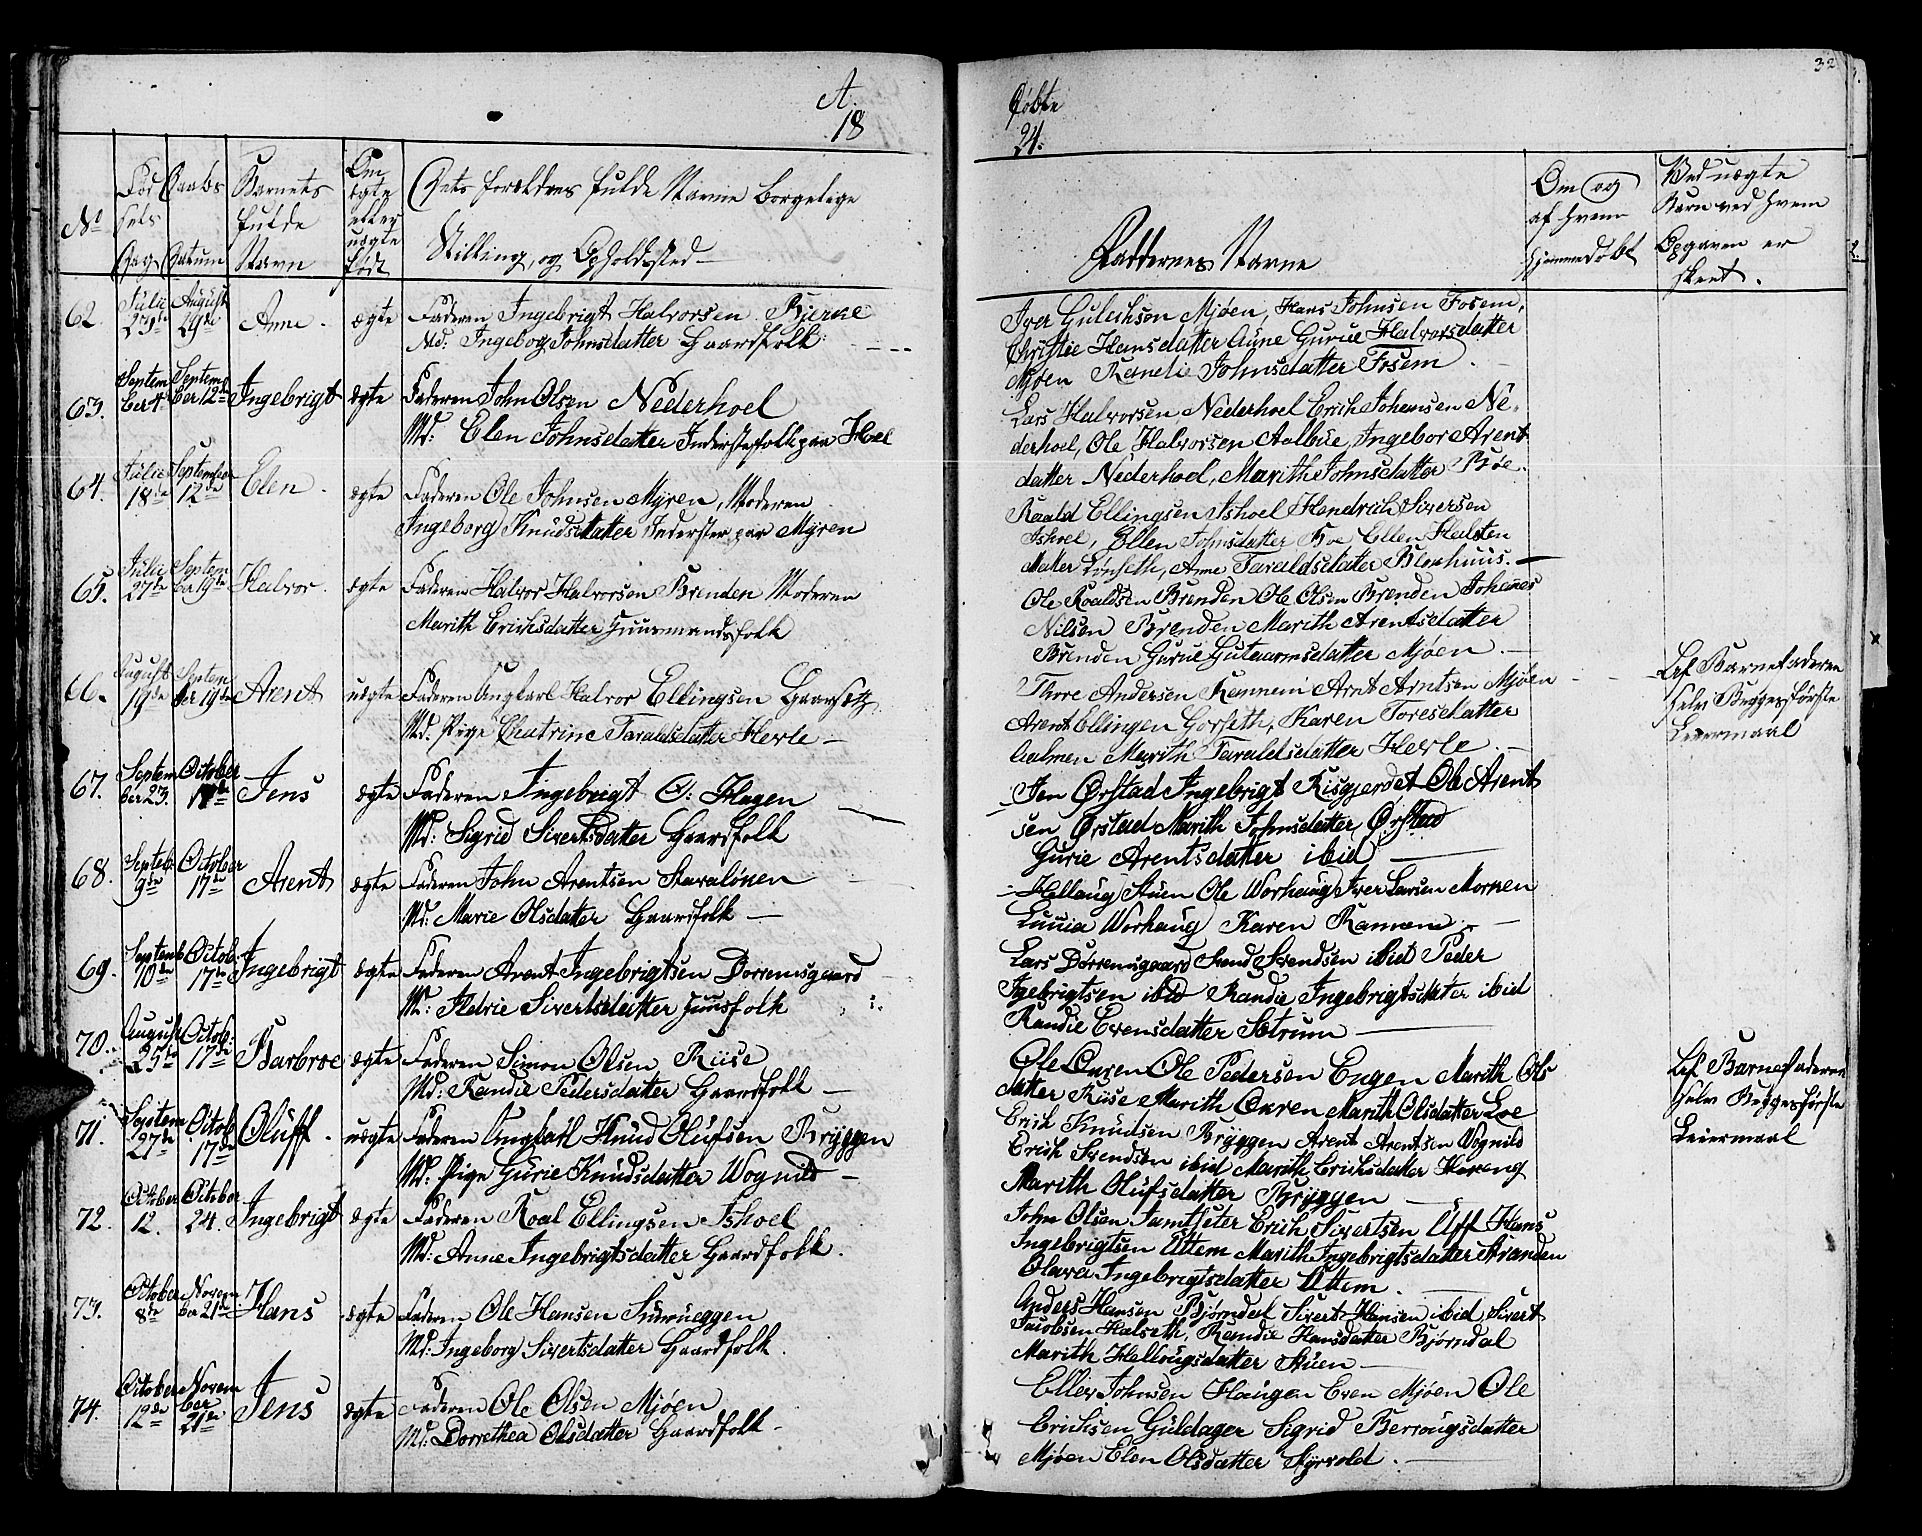 A. Døbte
18 24.
32
No
Fød
sels
Dag
Daabs
Datum
Barnets
fulde
Navn
Om
ægte
eller
uægte
født
Dets Forældres fulde Navne borgelige
Stilling, og Opholdssted
Faddernes Navne
Om og
af hvem
hjemmedøbt
Ved uægte
Barn ved hvem
Opgaven er
skeet.
62. Julii 23de August 29de Anne. ægte Faderen Ingebrigt Halvorsen Bjerke
Md. Ingebog Johnsdatter Gaardfolk
Iver Gulichsen Mjøen, Hans Johnsen Fosem,
Christie Hansdatter Aune Gurue Halvorsdatter
Mjøen Randie Johnsdatter Fosem
63. September 4. September 12te Ingebrigt ægte Faderen John Olsen Nederhoel
Md: Elen Johnsdatter Inderstefolk paa Hoel
Lars Halvorsen Nederhoel Erich Johansen Ne-
derhoel, Ole Halvorsen Aalbue, Ingebor Arent
datter Nederhoel, Marith Johnsdatter Bøe.
64. Julii 18de September 12te Elen. ægte Faderen Ole Johnsen Myren, Moderen
Ingeborg Knudsdatter Inderster paa Myren
Roald Ellingsen Ishoel Hendrich Siversen
Ishoel, Ellen Johnsdatter Boe Ellen Halsten
datter Lønseth, Anne Taraldsdatter Blexhuus.
65. Julii 27de September 19de Halvor. ægte Faderen Halvor Halvorsen Brenden Moderen
Marith Erichsdatter Huusmandsfolk
Ole Roaldsen Brenden Ole Olsen Brenden Johanes
Nilsen Brenden Marith Arentsdatter
Brenden Gurue Gutaarmsdatter Mjøen
66. August 19de September 19de Arent uægte Faderen Ungkarl Halvor Ellingsen Gaarseth
Md. Pige Chatrine Taraldsdatter Herle
Thore Andersen Rønnem Arnt Arntsen Mjøen
Arent Ellingen Gorseth, Karen Toresdatter
Aalmen Marith Taraldsdatter Herle
Lef Barnefaderen
selv Begges første
Leiermaal
67. September 23. October 17de Jens ægte Faderen Ingebrigt O: Hagen
Md: Sigrid Sivertsdatter Gaardfolk
Jen Ørstad Ingebrigt Risgjerdet Ole Arent
sen Ørstad Marith Johnsdatter Ørstad
Gurie Arentsdatter ibid
68. Septeb. 9de October 17de Arent ægte Faderen John Arentsen Stavaløkken
Md: Marie Olsdatter Gaardfolk
Hellaug Stuen Ole Worhaug Iver Larsen Morken
Lucia Worhaug Karen Ramem
69. Septemb 10de Octob. 17de Ingebrigt ægte Faderen Arent Ingebrigtsen Dorremsgaard
M: Sldrie Sivertsdatter Huusfolk
Lars Dørremsgaard Svend Svendsen ibid Peder
Igebrigtsen ibid Randie Ingebrigtsdater ibid
Randie Evensdatter Sætrum
70. August 25de Octob: 17de Barbroe ægte Faderen Simon Olsen Riise
Md: Randie Pedersdatter Gaardfolk
Ole Ouren Ole Pedersen Engen Marith Ols
datter Riise Marith Ouren Marith Olsdatter Loe
71. September 27de Octob 17de Oluff. uægte Faderen Ungkarl Knud Olufsen Bryggen
Md: Pige Gurie Knudsdatter Wognild
Erich Knudsen Bryggen Arent Arentsen Wognild
Erich Svendsen ibid Marith Erichsdatter Horeng
Marith Olufsdatter Bryggen
Lef Barnefaderen
selv Begges første
Leiermaal
72. October 12. October 24. Ingebrigt ægte Faderen Roal Ellingsen Ishoel
Md: Anne Ingebrigtsdatter Gaardfolk.
John Olsen Jamtseter Erich Sivertsen Uff Hans
Ingebrigtsen Uttem Marith Ingebrigtsdatter Stranden
Olava Ingebrigtsdatter Uttem.
73. October 8de November 21de Hans ægte Faderen Ole Hansen Snoveggen
Md: Ingeborg Sivertsdatter Gaardfolk.
Anders Hansen Bjørndal Sivert Hansen ibid Sivert
Jacobsen Halseth, Randie Hansdatter Bjørndal
Marith Hellougsdatter Stuen
74. October 12de November 21de Jens ægte Faderen Ole Olsen Mjøen
Md: Dorrethea Olsdatter Gaardfolk
Eller Johnsen Haugen Even Mjøen Ole
Erichsen Guldager Sigrid Berrougsdatter
Mjøen Elen Olsdatter Styrvold.